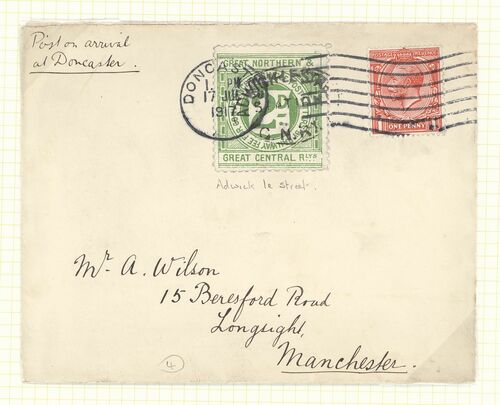 Post on arrival
at Doncaster.
GREAT NORTHERN &
GREAT CENTRAL RLYS
DONCASTER
PM
17 JU
1917
ADWICK LE ST
G.N.RY
POSTAGE REVENUE
ONE PENNY
Adwick le Street.
Mr. A. Wilson
15 Beresford Road
Longsight,
Manchester.
4